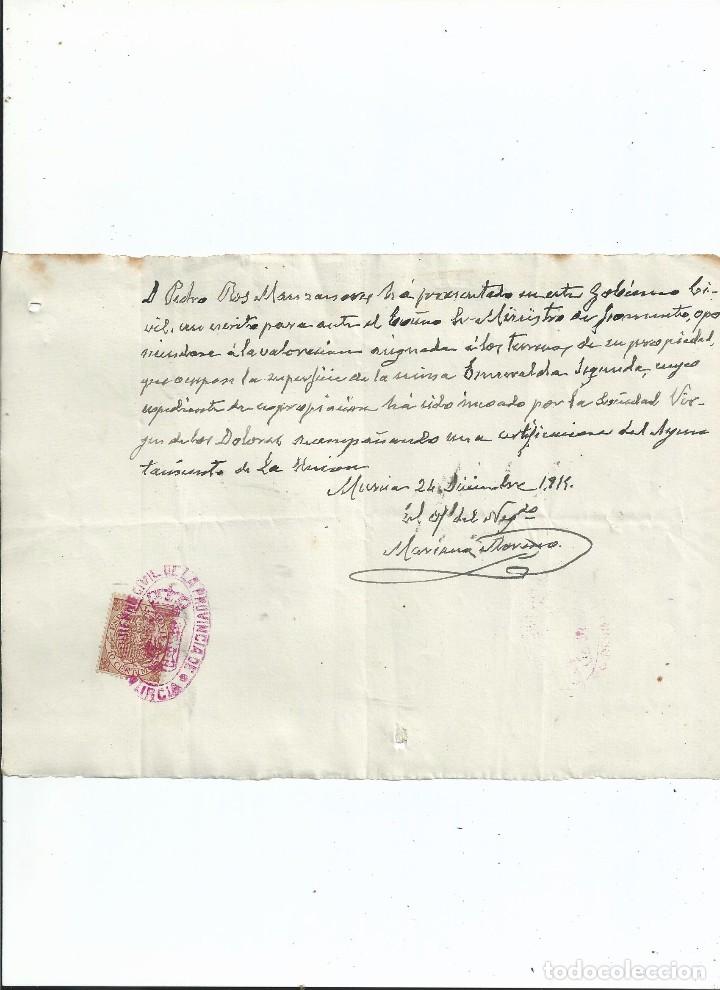 D Pedro Ros Manzanares há presentado en este Gobierno Ci-
vil, un escrito para ante el Excmo Sr Ministro de Fomento, opo
niendose á la valoracion asignada á los terrenos de su propiedad,
que ocupan la superficie de la mina Esmeralda Segunda, cuyo
expediente de expropiacion há sido incoado por la Sociedad Vir-
gen de los Dolores acompañando una certificacion del Ayun
tamiento de La Union
Murcia 24 Diciembre
El Of. del Negdo
Mariano Moreno.
CIVIL DE LA PROVINCIA DE
MURCIA
todocoleccion